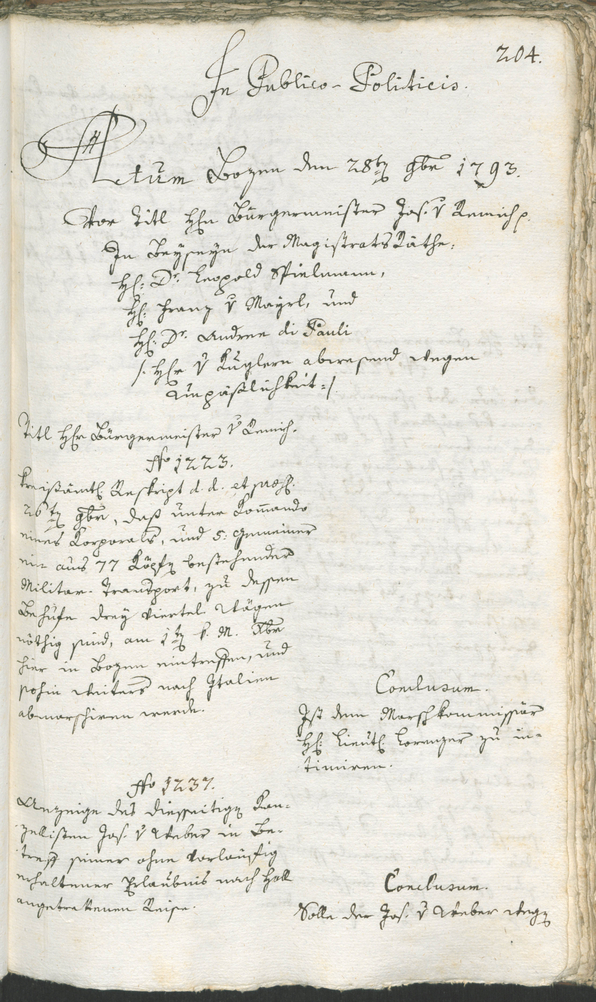 204.
In Publico-Politicis.
Actum Bozen den 28ten 9bre 1793.
Vor Titl Hhn Bürgermeister Jos. v Remich p.
In Beyseyn der Magistrats Räthe,
Hh: Dr. Leopold Spielmann,
Hh: Franz v Mayrl, und
Hh: Dr. Andree di Pauli
/: Hhr v Küglern abwesend wegen
Unpäßlichkeit :/
Titl Hhr Bürgermeister v Remich.
No 1223.
Kreisämtl Reskript d. d. et präs:
26ten 9bre, daß unter Komando
eines Korporals, und 5. Gemeiner
ein aus 77 Köpfen bestehender
Militar-Transport, zu dessen
Behufe drey Viertel Wägen
nöthig sind, am 1ten k. M. Xbr
hier in Bozen eintreffen, und
sohin weiters nach Italien
abmarschiren werde.
Conclusum.
Ist dem Marschkommissär
Hh: Lieut. Lorenzer zu in-
timiren.
No 1237.
Anzeige des diesseitigen Kan-
zelisten Jos. v Weber in Be-
treff seiner ohne vorläufig
erhaltener Erlaubnis nach Hall
angetrettenen Reise.
Conclusum.
Solle der Jos. v Weber wegen